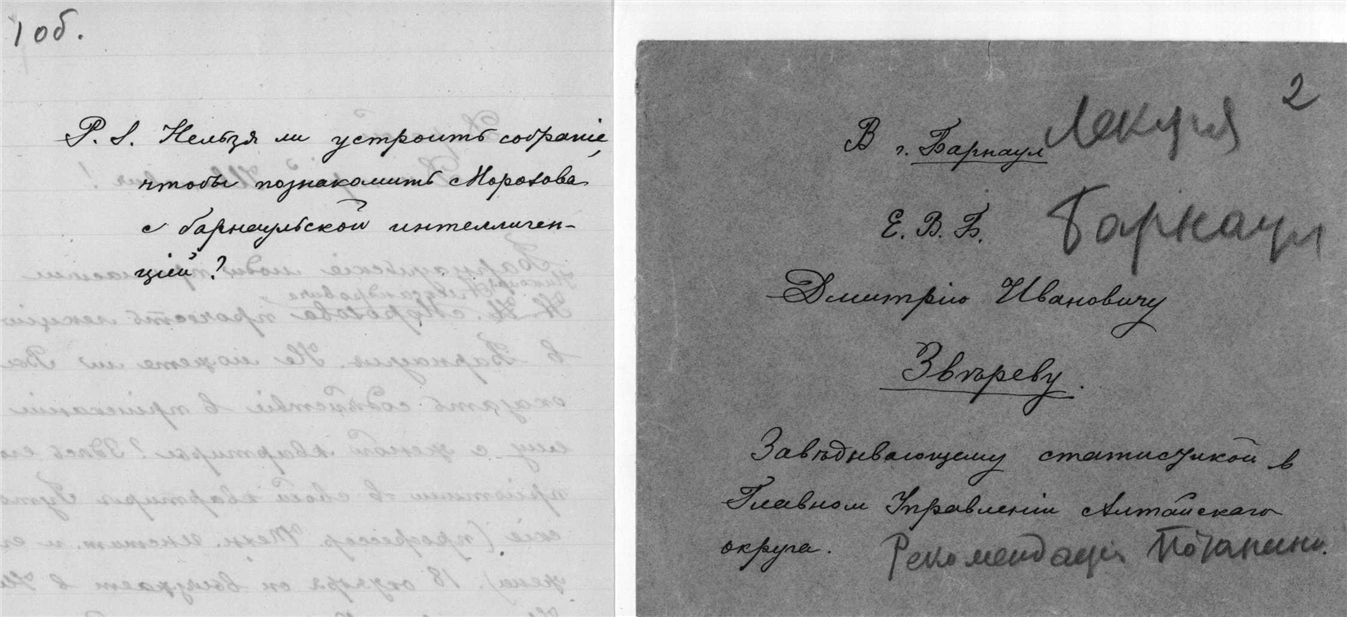 1 об.
P. S. Нельзя ли устроить собранiе,
чтобы познакомить Морозова
с барнаульской интеллиген-
цiей?
2
Лекция
В г. Барнаул
Барнаул
Е. В. Б.
Дмитрiю Ивановичу
Звѣреву.
Завѣдывающему статистикой в
Главном Управленiи Алтайскаго
округа.
Рекомендацiя Потанина.